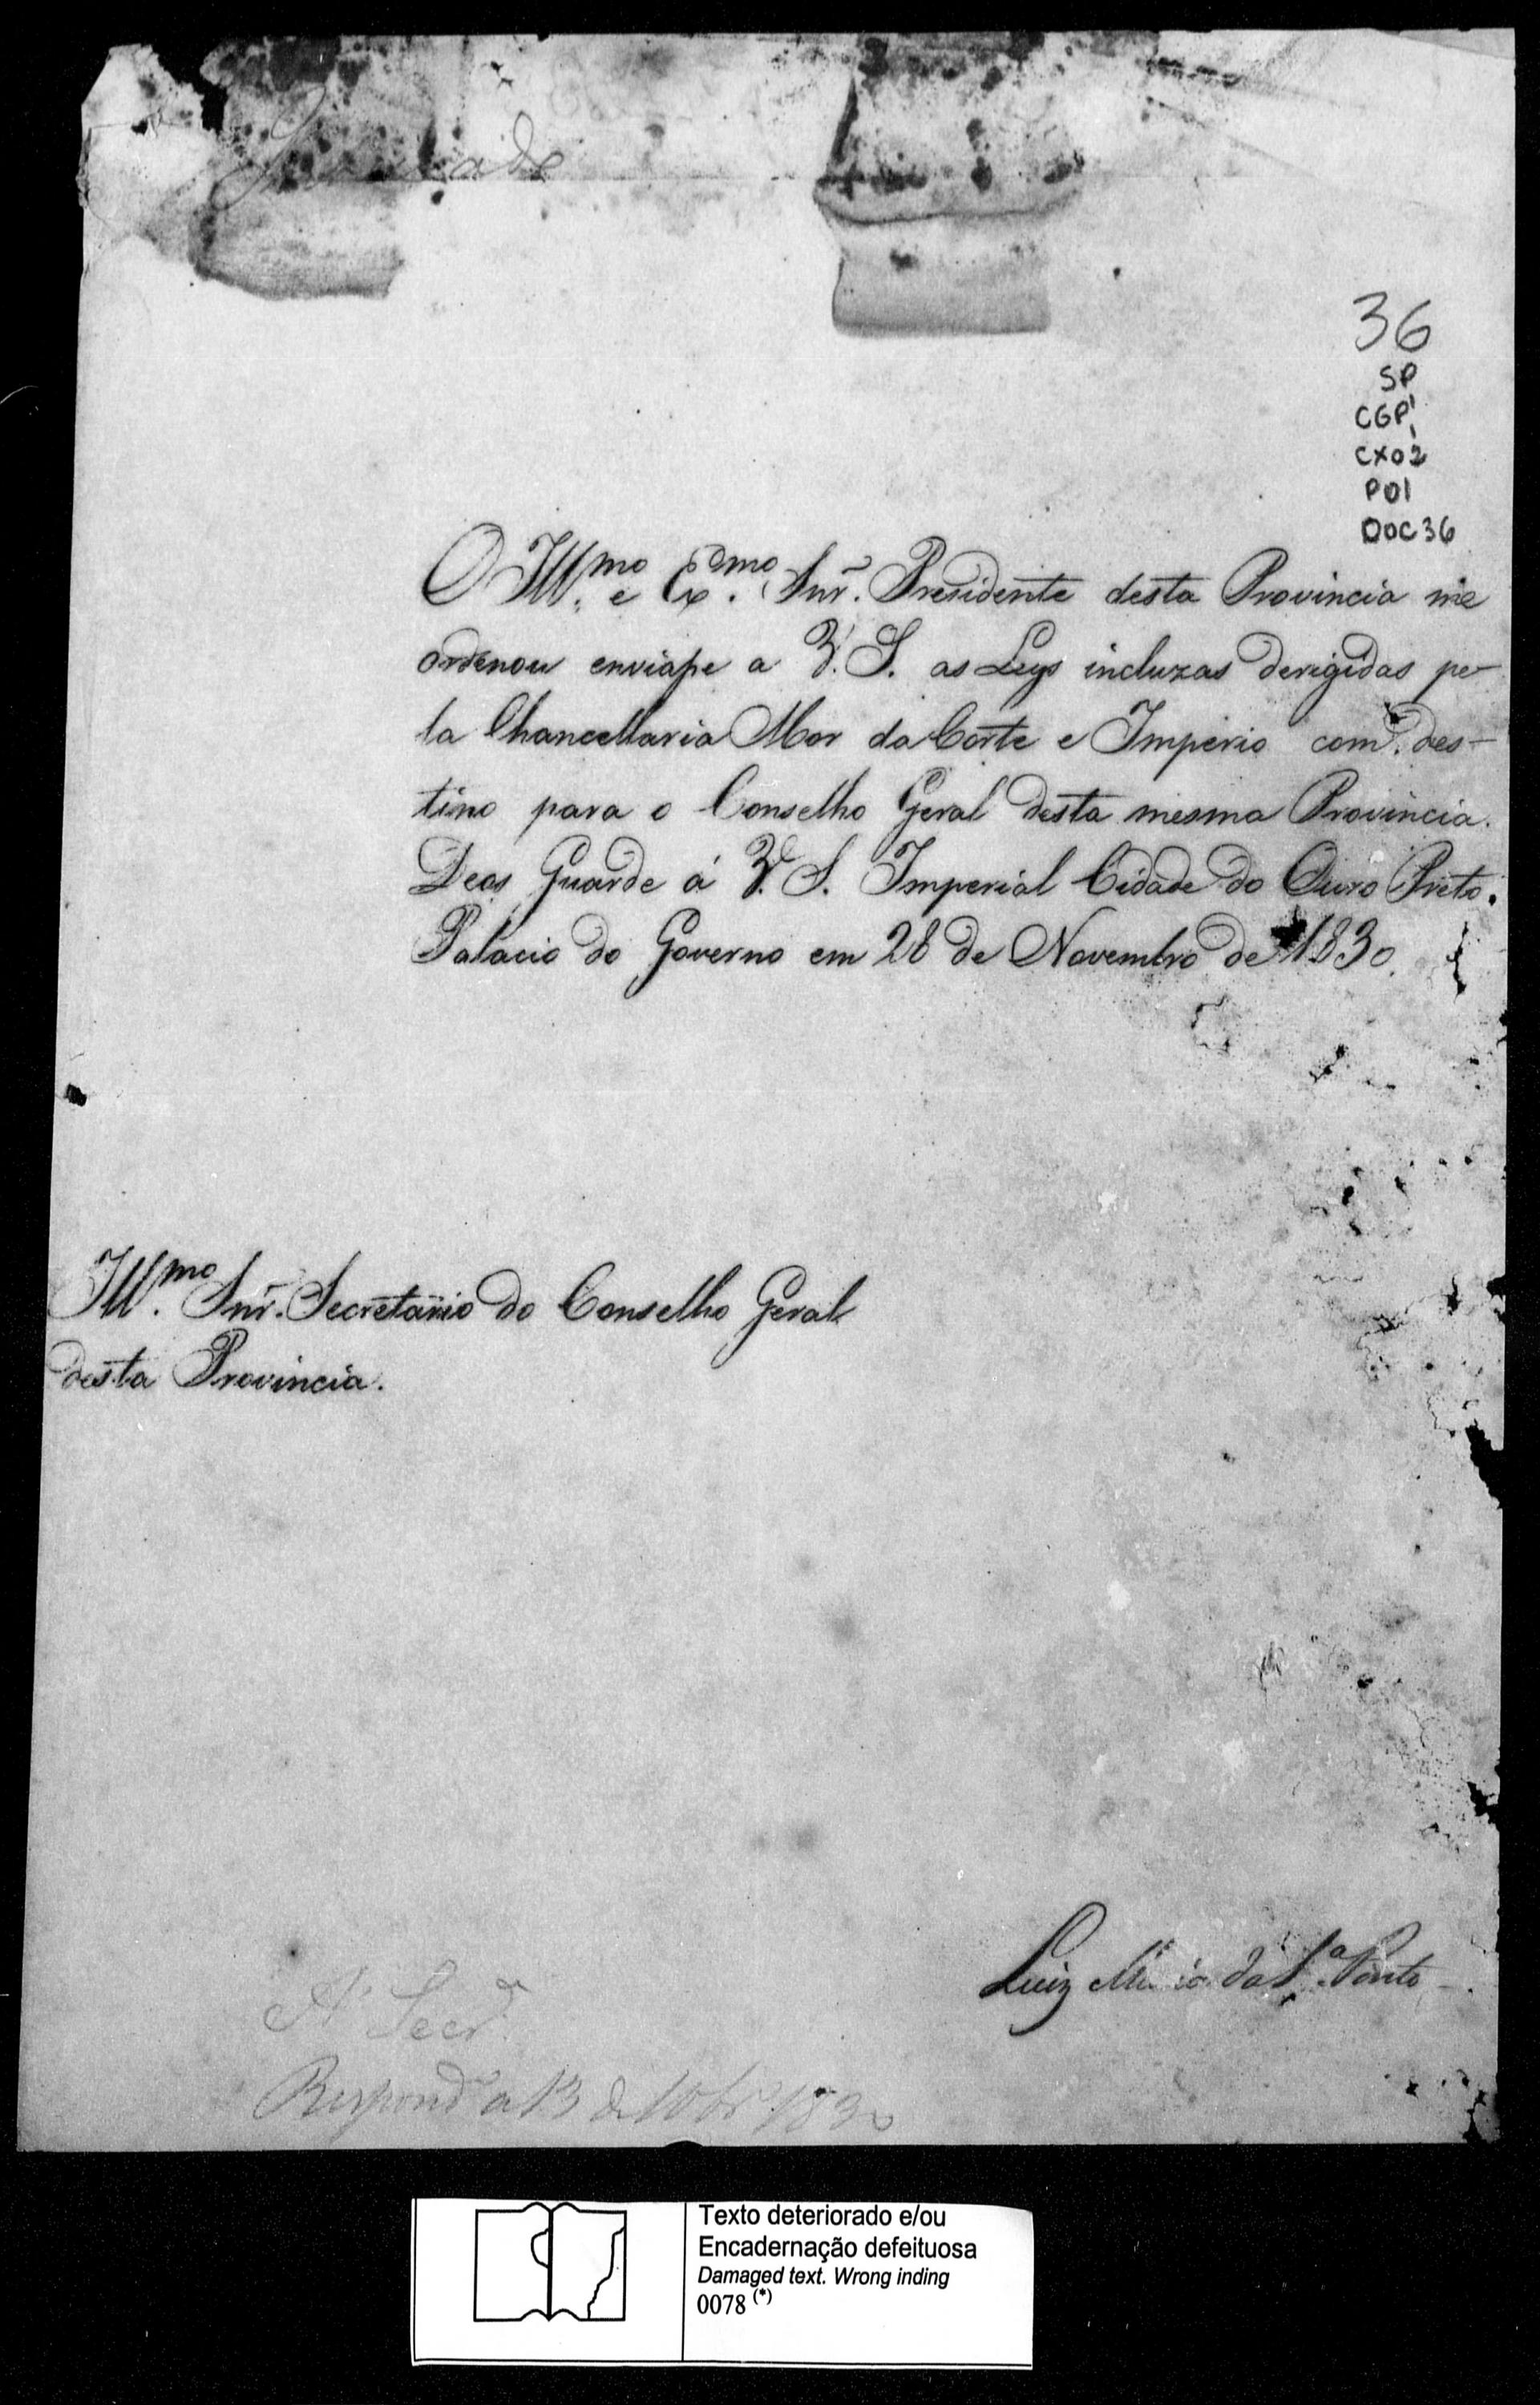 36
SP
CGP1
CX02
P01
DOC36
O Ill.mo e Ex.mo Snr. Presidente desta Provincia me
ordenou enviasse a V. S. as Leys incluzas derigidas pe-
la Chancellaria Mor da Corte e Imperio com des-
tino para o Conselho Geral desta mesma Provincia.
Deos Guarde á V. S. Imperial Cidade do Ouro Preto.
Palacio do Governo em 28 de Novembro de 1830.
Ill.mo Snr. Secretario do Conselho Geral
desta Provincia.
Luiz da S.a Pinto
A' Secr.a
Respond.a a 13 de 10br.o 1830
Texto deteriorado e/ou
Encadernação defeituosa
Damaged text. Wrong inding
0078 (*)